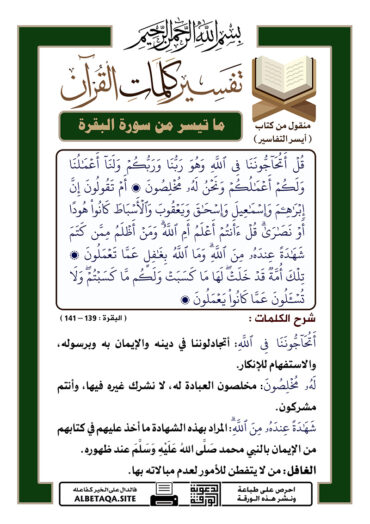 بسم الله الرحمن الرحيم
تفسير كلمات القرآن
منقول من كتاب
( أيسر التفاسير )
ما تيسر من سورة البقرة
قُلْ أَتُحَآجُّونَنَا فِى ٱللَّهِ وَهُوَ رَبُّنَا وَرَبُّكُمْ وَلَنَآ أَعْمَـٰلُنَا
وَلَكُمْ أَعْمَـٰلُكُمْ وَنَحْنُ لَهُۥ مُخْلِصُونَ ۝ أَمْ تَقُولُونَ إِنَّ
إِبْرَٰهِـۧمَ وَإِسْمَـٰعِيلَ وَإِسْحَـٰقَ وَيَعْقُوبَ وَٱلْأَسْبَاطَ كَانُوا۟ هُودًا
أَوْ نَصَـٰرَىٰ ۗ قُلْ ءَأَنتُمْ أَعْلَمُ أَمِ ٱللَّهُ ۗ وَمَنْ أَظْلَمُ مِمَّن كَتَمَ
شَهَـٰدَةً عِندَهُۥ مِنَ ٱللَّهِ ۗ وَمَا ٱللَّهُ بِغَـٰفِلٍ عَمَّا تَعْمَلُونَ ۝
تِلْكَ أُمَّةٌ قَدْ خَلَتْ ۖ لَهَا مَا كَسَبَتْ وَلَكُم مَّا كَسَبْتُمْ ۖ وَلَا
تُسْـَٔلُونَ عَمَّا كَانُوا۟ يَعْمَلُونَ ۝
شرح الكلمات : ( البقرة : 139 – 141 )
أَتُحَآجُّونَنَا فِى ٱللَّهِ: أتجادلوننا في دينه والإيمان به وبرسوله،
والاستفهام للإنكار.
لَهُۥ مُخْلِصُونَ: مخلصون العبادة له، لا نشرك غيره فيها، وأنتم
مشركون.
شَهَـٰدَةً عِندَهُۥ مِنَ ٱللَّهِ: المراد بهذه الشهادة ما أخذ عليهم في كتابهم
من الإيمان بالنبي محمد صَلَّى اللهُ عَلَيْهِ وَسَلَّمَ عند ظهوره.
الغافل: من لا يتفطن للأمور لعدم مبالاته بها.
احرص على طباعة
ونشر هذه الورقة
الدعوية
الورقة
فالدال على الخير كفاعله
ALBETAQA.SITE